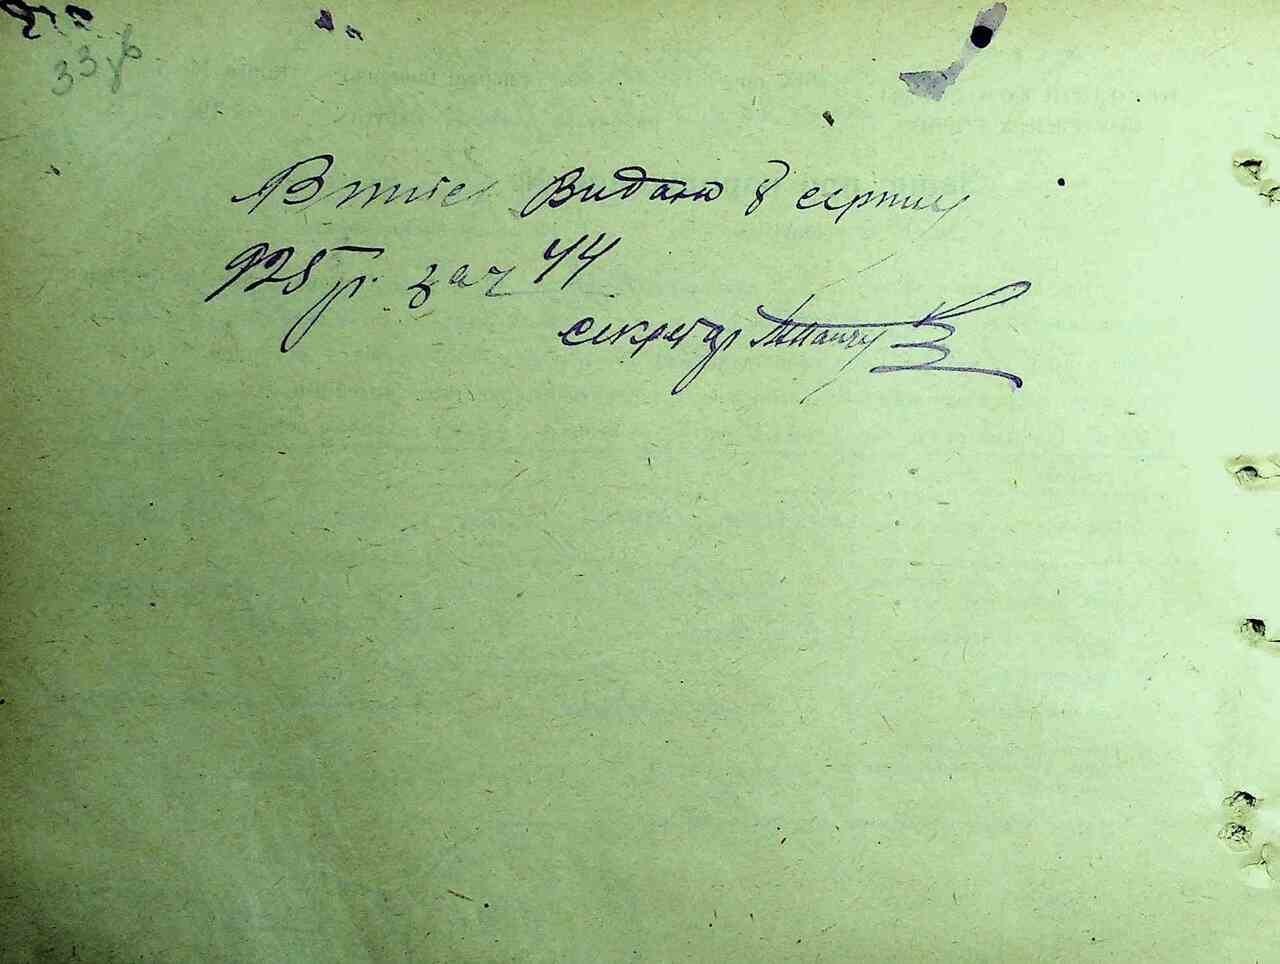 33 зв
Витяг Видано 8 серпня
925 р. за ч 44
секретар